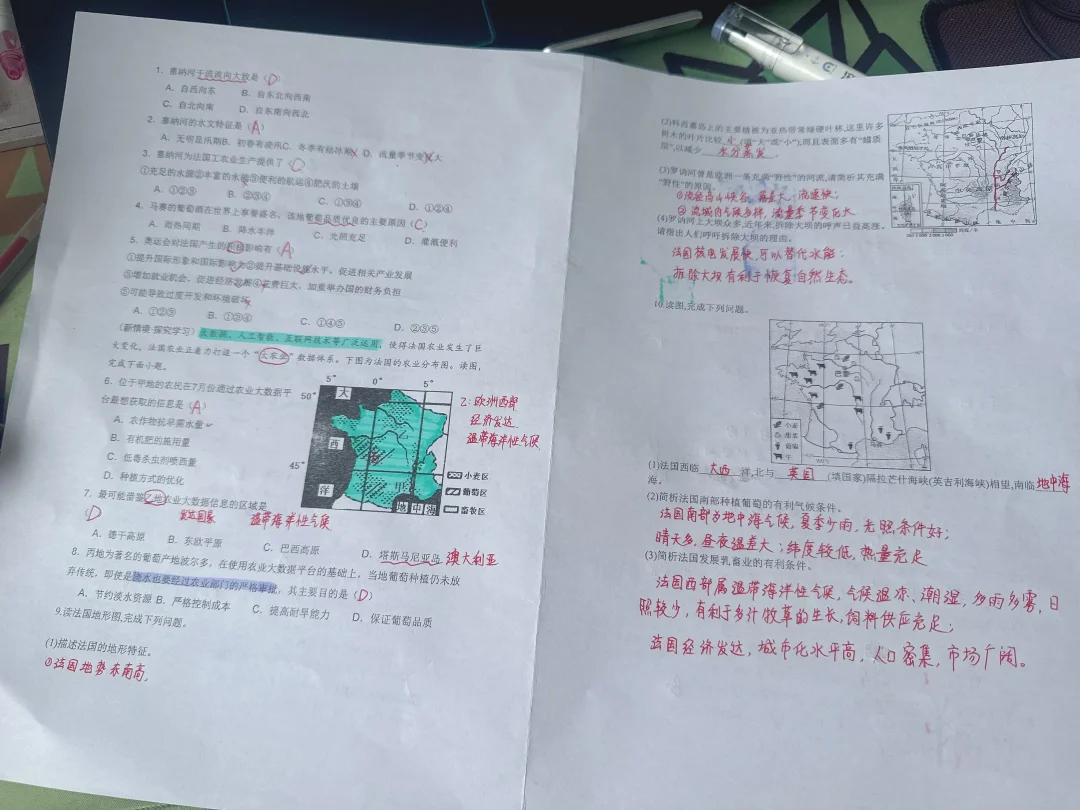 1. 塞纳河干流流向大致是（D）
A. 自西向东 B. 自东北向西南
C. 自北向南 D. 自东南向西北
2. 塞纳河的水文特征是（A）
A. 无明显汛期B. 初春有凌汛C. 冬季有结冰期X D. 流量季节变化大
3. 塞纳河为法国工农业生产提供了（C）
①充足的水源②丰富的水能③便利的航运④肥沃的土壤
A. ①②③ B. ②③④ C. ①③④ D. ①②④
4. 马赛的葡萄酒在世界上享誉盛名，该地葡萄品质优良的主要原因（C）
A. 雨热同期 B. 降水丰沛 C. 光照充足 D. 灌溉便利
5. 奥运会对法国产生的积极影响有（A）
①提升国际形象和国际影响力②提升基础设施水平，促进相关产业发展
③增加就业机会，促进经济发展④花费巨大，加重举办国的财务负担
⑤可能导致过度开发和环境破坏
A. ①②③ B. ①③④ C. ①④⑤ D. ②③⑤
（新情境·探究学习）大数据、人工智能、互联网技术等广泛运用，使得法国农业发生了巨
大变化。法国农业正着力打造一个“大农业”数据体系。下图为法国的农业分布图。读图，
完成下面小题。
6. 位于甲地的农民在7月份通过农业大数据平
台最想获取的信息是（A）
A. 农作物抗旱需水量
B. 有机肥的施用量
C. 低毒杀虫剂喷洒量
D. 种植方式的优化
5° 0° 5°
50°
45°
大
西
洋
甲
地中海
小麦区
葡萄区
畜牧区
乙：欧洲西部
经济发达
温带海洋性气候
7. 最可能借鉴乙地农业大数据信息的区域是
（D） 发达国家 温带海洋性气候
A. 德干高原 B. 东欧平原 C. 巴西高原 D. 塔斯马尼亚岛 澳大利亚
8. 丙地为著名的葡萄产地波尔多，在使用农业大数据平台的基础上，当地葡萄种植仍未放
弃传统，即使是浇水也要经过农业部门的严格审批，其主要目的是（D）
A. 节约淡水资源 B. 严格控制成本 C. 提高耐旱能力 D. 保证葡萄品质
9.读法国地形图,完成下列问题。
(1)描述法国的地形特征。
①法国地势东南高，
(2)科西嘉岛上的主要植被为亚热带常绿硬叶林,这里许多
树木的叶片比较 小 (填“大”或“小”),而且表面多有“蜡质
层”,以减少 水分蒸发 。
(3)罗讷河曾是欧洲一条充满“野性”的河流,请简析其充满
“野性”的原因。
①流经高山峡谷，落差大，流速快；
②流域内气候多样，流量季节变化大
(4)罗讷河上大坝众多,近年来,拆除大坝的呼声日益高涨。
请指出人们呼吁拆除大坝的理由。
法国核电发展快，可以替代水能；
拆除大坝有利于恢复自然生态。
10.读图,完成下列问题。
巴黎
小麦
甜菜
葡萄
牛
(1)法国西临 大西 洋,北与 英国 (填国家)隔拉芒什海峡(英吉利海峡)相望,南临 地中海
海。
(2)简析法国南部种植葡萄的有利气候条件。
法国南部为地中海气候，夏季少雨，光照条件好；
晴天多，昼夜温差大；纬度较低，热量充足
(3)简析法国发展乳畜业的有利条件。
法国西部属温带海洋性气候，气候温凉、潮湿，多雨多雾，日
照较少，有利于多汁牧草的生长，饲料供应充足；
法国经济发达，城市化水平高，人口密集，市场广阔。